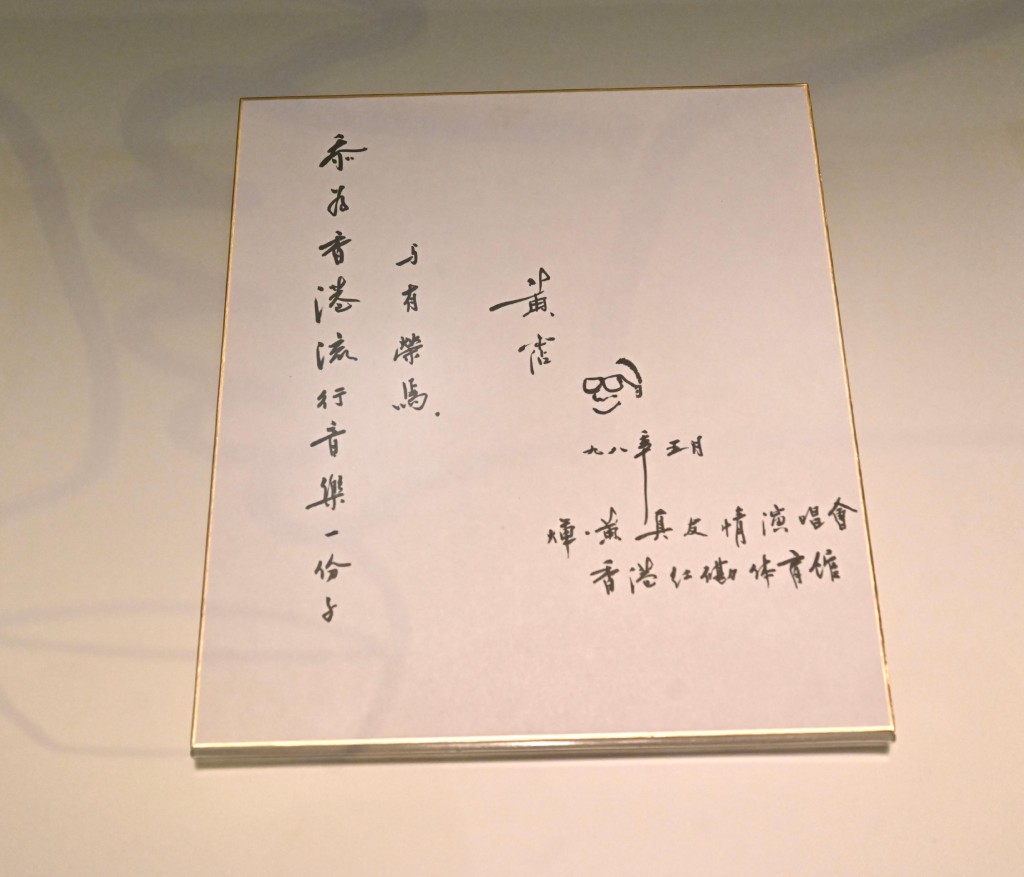 忝为香港流行音樂一份子
与有榮焉.
黄霑
九八年五月
煇·黄真友情演唱會
香港红磡体育館